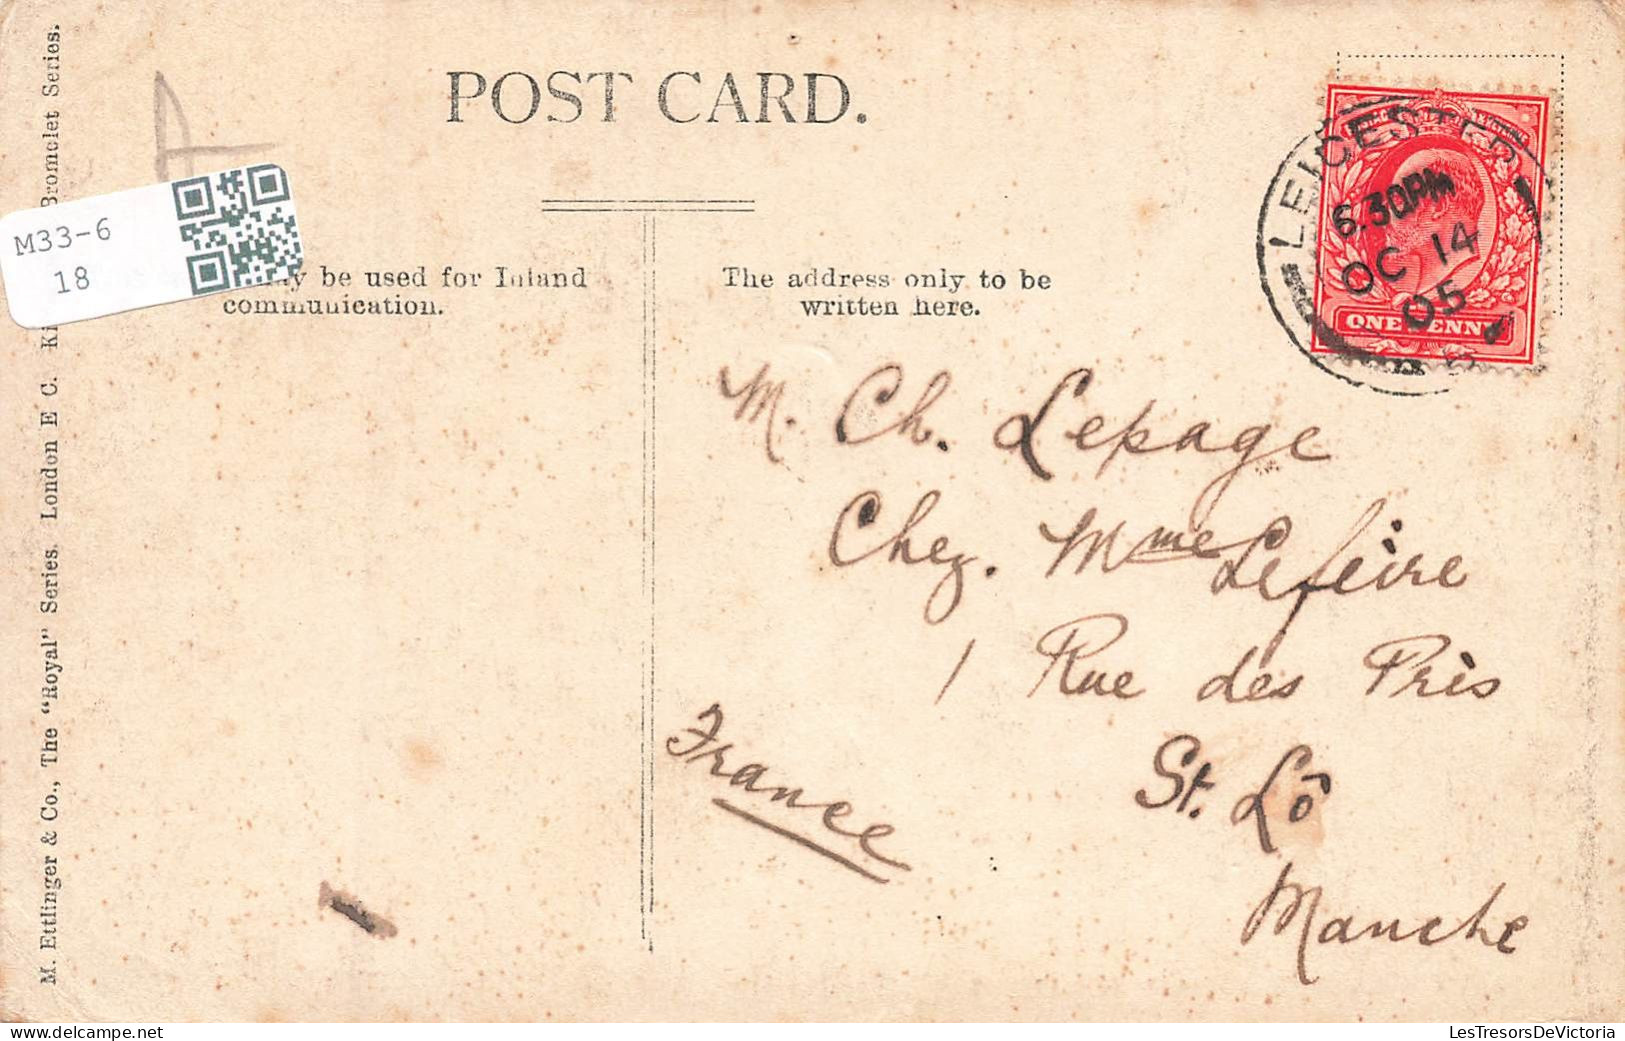 POST CARD.
M33-6
18
be used for Inland
communication.
The address only to be
written here.
LEICESTER
6.30PM
OC 14
05
ONE PENNY
M. Ch. Lepage
Chez. Mme Lefèire
1 Rue des Près
St. Lô
Manche
France
M. Ettlinger & Co., The "Royal" Series. London E C. Bromelet Series.
LesTresorsDeVictoria